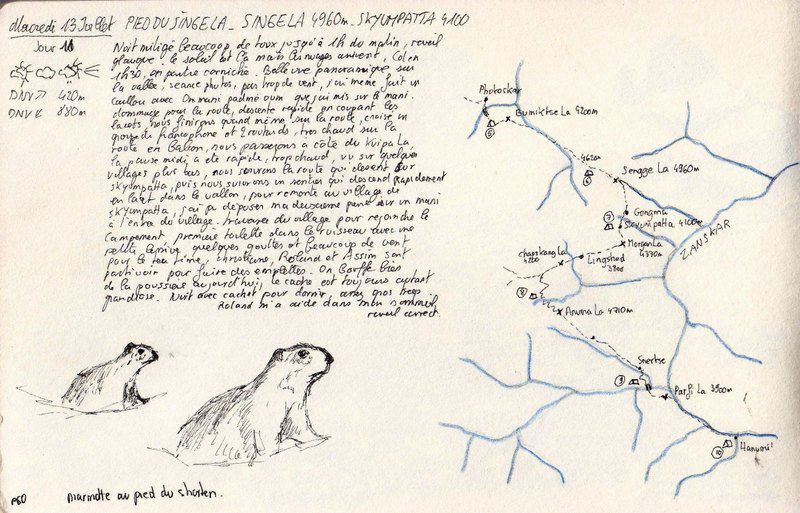 Mercredi 13 Juillet PIED DU SINGELA _ SINGELA 4960m _ SKYUMPATTA 4100
Jour 11
DNV ↗ 420m
DNV ↙ 880m
Nuit mitigé beaucoup de toux jusqu'à 1h du matin, reveil
glauque, le soleil est là mais les nuages arrivent, Col en
1h30, en pente corniche. Belle vue panoramique sur
la vallée, séance photos, pas trop de vent, j'ai meme fait un
caillou avec Om mani padme oum que j'ai mis sur le mani.
dommage pour la route, descente rapide en coupant les
lacets nous finirons quand même sur la route, croise un
groupe de francophone et 2 routards, tres chaud sur la
route en balcon, nous passerons à côté du Kuipa La
la pause midi a été rapide, trop chaud, vu sur quelques
villages plus bas, nous suivrons la route qui descent sur
skyumpatta, puis nous suivrons un sentier qui descend rapidement
en lacet dans le vallon, pour remonté au village de
skyumpatta, j'ai pu déposer ma deuxieme pierre sur un mani
à l'entré du village. traversée du village pour rejoindre le
Campement premiere toilette dans le ruisseau avec une
petite lessive quelques gouttes et beaucoup de vent
pour le tea time, christiene, Roland et Assim sont
parti voir pour faire des emplettes. On bouffe bien
de la poussiere aujourd'hui, le cadre est toujours autant
grandiose. Nuit avec cachet pour dormir, apres gros
Roland m'a aidé dans mon sommeil,
reveil correct.
Photoskar
Bumiktse La 4200m
5
4620m
6
Sengge La 4960m
Gongma
7
Skyumpatta 4100m
Morgan La
4370m
Lingshed
3900
chapskang La
4200
ZANSKAR
8
Anuma La 4710m
Snertse
9
Parfi La 3900m
10
Hanumil
P60
marmotte au pied du shorten.